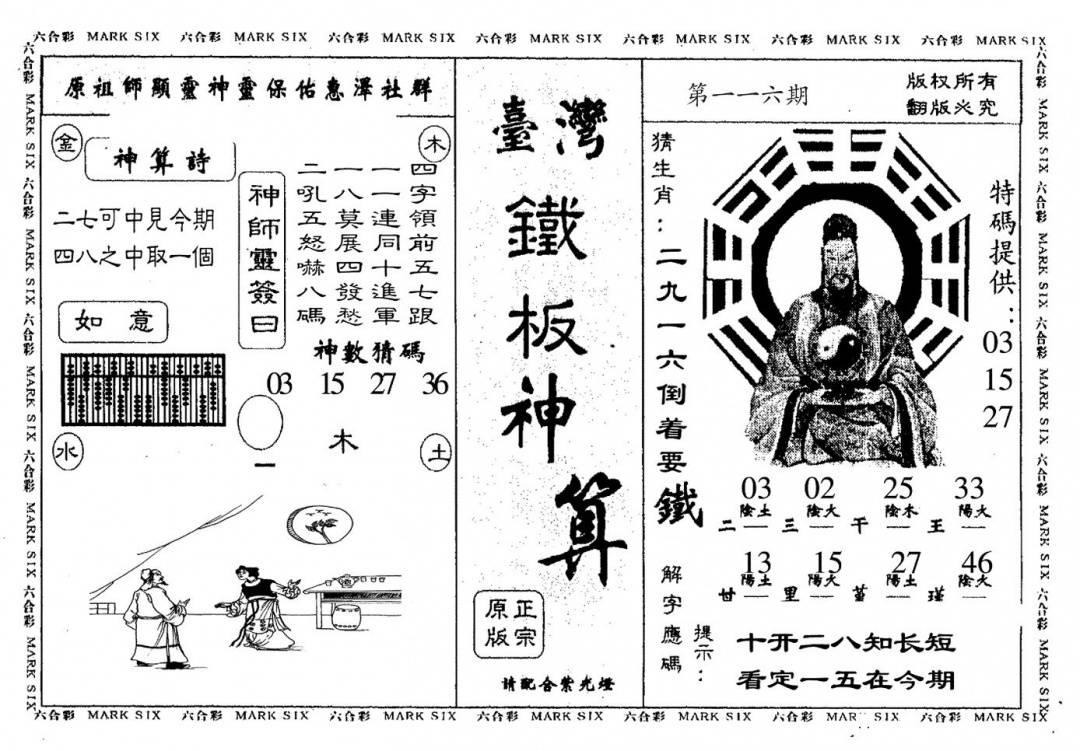 六合彩 MARK SIX 六合彩 MARK SIX 六合彩 MARK SIX 六合彩 MARK SIX 六合彩 MARK SIX 六合彩 MARK SIX 六合彩 MARK SIX
六合彩 MARK SIX 六合彩 MARK SIX 六合彩 MARK SIX 六合彩 MARK SIX 六合彩 MARK SIX
原祖師顯靈神靈保佑惠澤社群
金
木
神算詩
二七可中見今期
四八之中取一個
如意
神師靈簽曰
四字領前五七跟
一一連同十進軍
一八莫展四發愁
二吼五怒嚇八碼
神數猜碼
03 15 27 36
木
一
水
土
臺灣
鐵
板
神
算
正宗
原版
請配合紫光燈
第一一六期
版权所有
翻版必究
猜生肖：二九一六倒着要鐵
特碼提供：
03
15
27
03 02 25 33
陰土 陰火 陰木 陽火
二 三 干 王
13 15 27 46
陽土 陽火 陽土 陰火
甘 里 堇 瑾
解字應碼
提示：
十开二八知长短
看定一五在今期
六合彩 MARK SIX 六合彩 MARK SIX 六合彩 MARK SIX 六合彩 MARK SIX 六合彩 MARK SIX
六合彩 MARK SIX 六合彩 MARK SIX 六合彩 MARK SIX 六合彩 MARK SIX 六合彩 MARK SIX 六合彩 MARK SIX 六合彩 MARK SIX